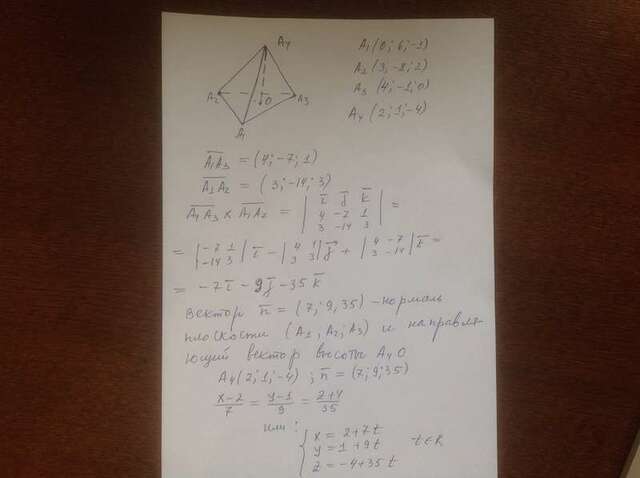 A₄
A₂ O A₃
A₁
A₁(0; 6; -1)
A₂(3; -8; 2)
A₃(4; -1; 0)
A₄(2; 1; -4)
A₁A₃ = (4; -7; 1)
A₁A₂ = (3; -14; 3)
A₁A₃ × A₁A₂ = | i j k |
| 4 -7 1 | =
| 3 -14 3 |
= | -7 1 | i - | 4 1 | j + | 4 -7 | k =
| -14 3 | | 3 3 | | 3 -14 |
= -7i - 9j - 35k
Вектор n = (7; 9; 35) - нормаль
плоскости (A₁, A₂; A₃) и направля-
ющий вектор высоты A₄O
A₄(2; 1; -4) ; n = (7; 9; 35)
x-2/7 = y-1/9 = z+4/35
или:
{ x = 2+7t
y = 1+9t t∈R
z = -4+35t